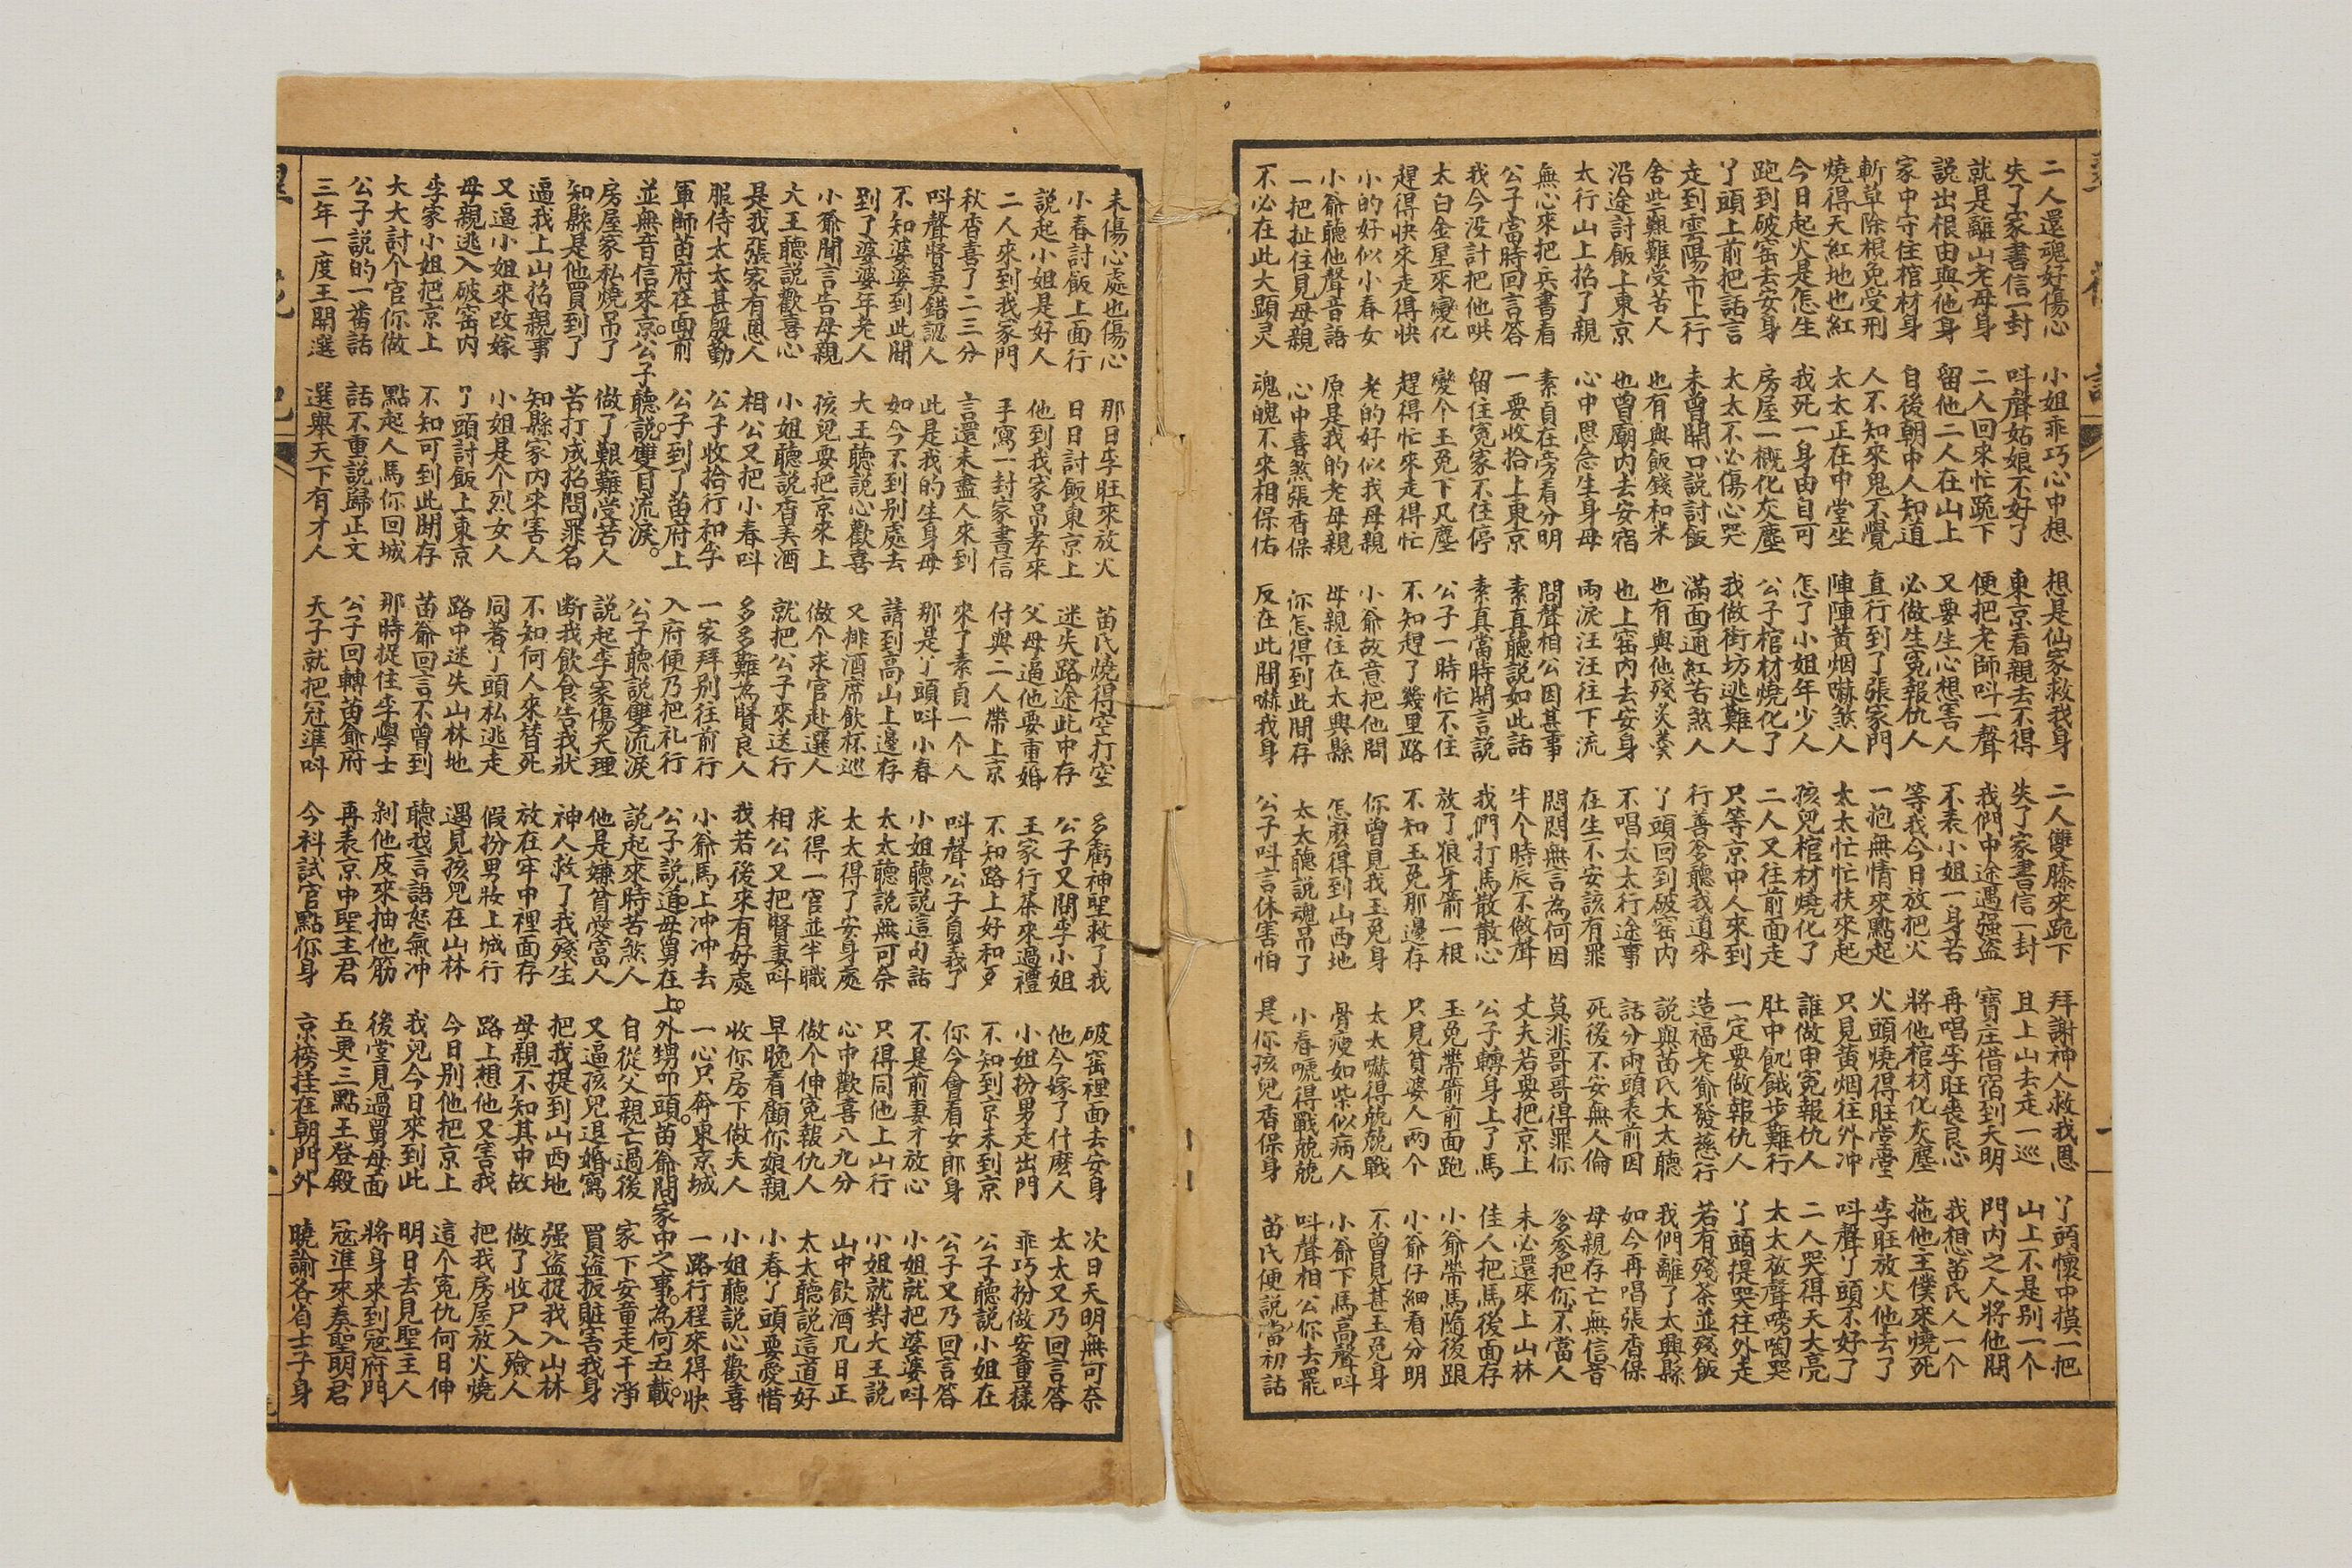 二人還魂好傷心 小姐乖巧心中想 想是仙家救我身 二人雙膝來跪下 拜謝神人救我恩 丫頭懷中摸一把
失了家書信一封 呌聲姑娘不好了 東京看親去不得 失了家書信一封 且上山去走一巡 山上不是别一个
就是離山老母身 二人回來忙跪下 便把老師呌一聲 我們中途遇强盗 寶庄借宿到天明 門内之人將他問
説出根由與他身 留他二人在山上 又要生心想害人 不表小姐一身苦 再唱李旺喪良心 我想苗氏人一个
家中守住棺材身 自後朝中人知道 必做生寃報仇人 等我今日放把火 將他棺材化灰塵 拖他主僕來燒死
斬草除根免受刑 人不知來鬼不覺 直行到了張家門 一抱無情來點起 火頭燒得旺堂堂 李旺放火他去了
燒得天紅地也紅 太太正在中堂坐 陣陣黄烟嚇煞人 太太忙忙扶來起 只見黄烟往外冲 呌聲丫頭不好了
今日起火是怎生 我死一身由自可 怎了小姐年少人 孩兒棺材燒化了 誰做申寃報仇人 二人哭得天大亮
跑到破窑去安身 房屋一概化灰塵 公子棺材燒化了 二人又往前面走 肚中飢餓步難行 太太放聲嗙啕哭
丫頭上前把話言 太太不必傷心哭 我做街坊逃難人 只等京中人來到 一定要做報仇人 丫頭提哭往外走
走到雲陽市上行 未曾開口説討飯 滿面通紅苦煞人 行善爹聽我道來 造福老爺發慈行 若有殘茶並殘飯
舍些艱難受苦人 也有與飯錢和米 也有與他殘炙羹 丫頭回到破窑内 説與苗氏太太聽 我們離了太興縣
沿途討飯上東京 也曾廟内去安宿 也上窑内去安身 不唱太太行途事 話分兩頭表前因 如今再唱張香保
太行山上招了親 心中思念生身母 兩淚汪汪往下流 在生不安該有罪 死後不安無人倫 母親存亡無信音
無心來把兵書看 素貞在旁看分明 問聲相公因甚事 悶悶無言為何因 莫非哥哥得罪你 爹爹把你不當人
公子當時回言答 一要收拾上東京 素真聽説如此話 半个時辰不做聲 丈夫若要把京上 未必還來上山林
我今没計把他哄 留住寃家不住停 素真當時開言説 我們打馬散散心 公子轉身上了馬 佳人把馬後面存
太白金星來變化 變个玉兎下凡塵 公子一時忙不住 放了狼牙箭一根 玉兎帶箭前面跑 小爺帶馬隨後跟
趕得快來走得快 趕得忙來走得忙 不知趕了幾里路 不知玉兎那邊存 只見貧婆人两个 小爺仔細看分明
小的好似小春女 老的好似我母親 小爺故意把他問 你曾見我玉兎身 太太嚇得兢兢戰 不曾見甚玉兎身
小爺聽他聲音語 原是我的老母親 母親住在太興縣 怎麽得到山西地 骨瘦如柴似病人 小爺下馬高聲呌
一把扯住見母親 心中喜煞張香保 你怎得到此間存 太太聽説魂吊了 小春唬得戰兢兢 呌聲相公你去罷
不必在此大顕灵 魂魄不來相保佑 反在此間嚇我身 公子呌言休害怕 是你孩兒香保身 苗氏便説當初話
未傷心處也傷心 那日李旺來放火 苗氏燒得空打空 多虧神聖救了我 破窑裡面去安身 次日天明無可奈
小春討飯上面行 日日討飯東京上 迷失路途此中存 公子又問李小姐 他今嫁了什麽人 太太又乃回言答
説起小姐是好人 他到我家吊孝來 父母逼他要重婚 王家行茶來過禮 小姐扮男走出門 乖巧扮做安童樣
二人來到我家門 手寫一封家書信 付與二人帶上京 不知路上好和歹 不知到京未到京 公子聽説小姐在
秋香喜了二三分 言還未盡人來到 來了素貞一个人 呌聲公子負我了 你今會看女郎身 公子又乃回言答
呌聲賢妻錯認人 此是我的生身母 那是丫頭呌小春 小姐聽説這句話 不是前妻才放心 小姐就把婆婆呌
不知婆婆到此間 如今不到别處去 請到高山上邊存 太太聽説無可奈 只得同他上山行 小姐就對大王説
到了婆婆年老人 大王聽説心歡喜 又排酒席飲杯巡 太太得了安身處 心中歡喜八九分 山中飲酒几日正
小爺聞言告母親 孩兒要把京來上 做个求官赴選人 求得一官並半職 做个伸寃報仇人 太太聽説這道好
大王聽説歡喜心 小姐聽説香美酒 就把公子來送行 相公又把賢妻呌 早晚看顧你娘親 小春丫頭要愛惜
是我張家有恩人 相公又把小春呌 多多難為賢良人 我若後來有好處 收你房下做夫人 小姐聽説心歡喜
服侍太太甚殷勤 公子收拾行和李 一家拜别往前行 小爺馬上冲冲去 一心只奔東京城 一路行程來得快
軍師苗府在面前 公子到了苗府上 入府便乃把礼行 公子説道母舅在上。外甥叩頭。苗爺問家中之事。為何五載。
並無音信來京。公子聽説。雙目流淚。 公子聽説雙流淚 説起來時苦煞人 自從父親亡過後 家下安童走干淨
房屋家私燒吊了 做了艱難受苦人 説起李家傷天理 他是嫌貧愛富人 又逼孩兒退婚寫 買盗扳賍害我身
知縣是他買到了 苦打成招問罪名 断我飲食告我狀 神人救了我殘生 把我提到山西地 强盗捉我入山林
逼我上山招親事 知縣家内來害人 不知何人來替死 放在牢中裡面存 母親不知其中故 做了收尸入殮人
又逼小姐來改嫁 小姐是个烈女人 同著丫頭私逃走 假扮男妝上城行 路上想他又害我 把我房屋放火燒
母親逃入破窑内 丫頭討飯上東京 路中迷失山林地 遇見孩兒在山林 今日别他把京上 這个寃仇何日伸
李家小姐把京上 不知可到此間存 苗爺回言不曾到 聽我言語怒氣冲 我兒今日來到此 明日去見聖主人
大大討个官你做 點起人馬你回城 那時捉住李學士 剝他皮來抽他筋 後堂見過舅母面 將身來到寇府門
公子説的一番話 話不重説歸正文 公子回轉苗爺府 再表京中聖主君 五更三點王登殿 寇準來奏聖明君
三年一度王開選 選舉天下有才人 天子就把冦準呌 今科試官點你身 京榜挂在朝門外 曉諭各省士子身